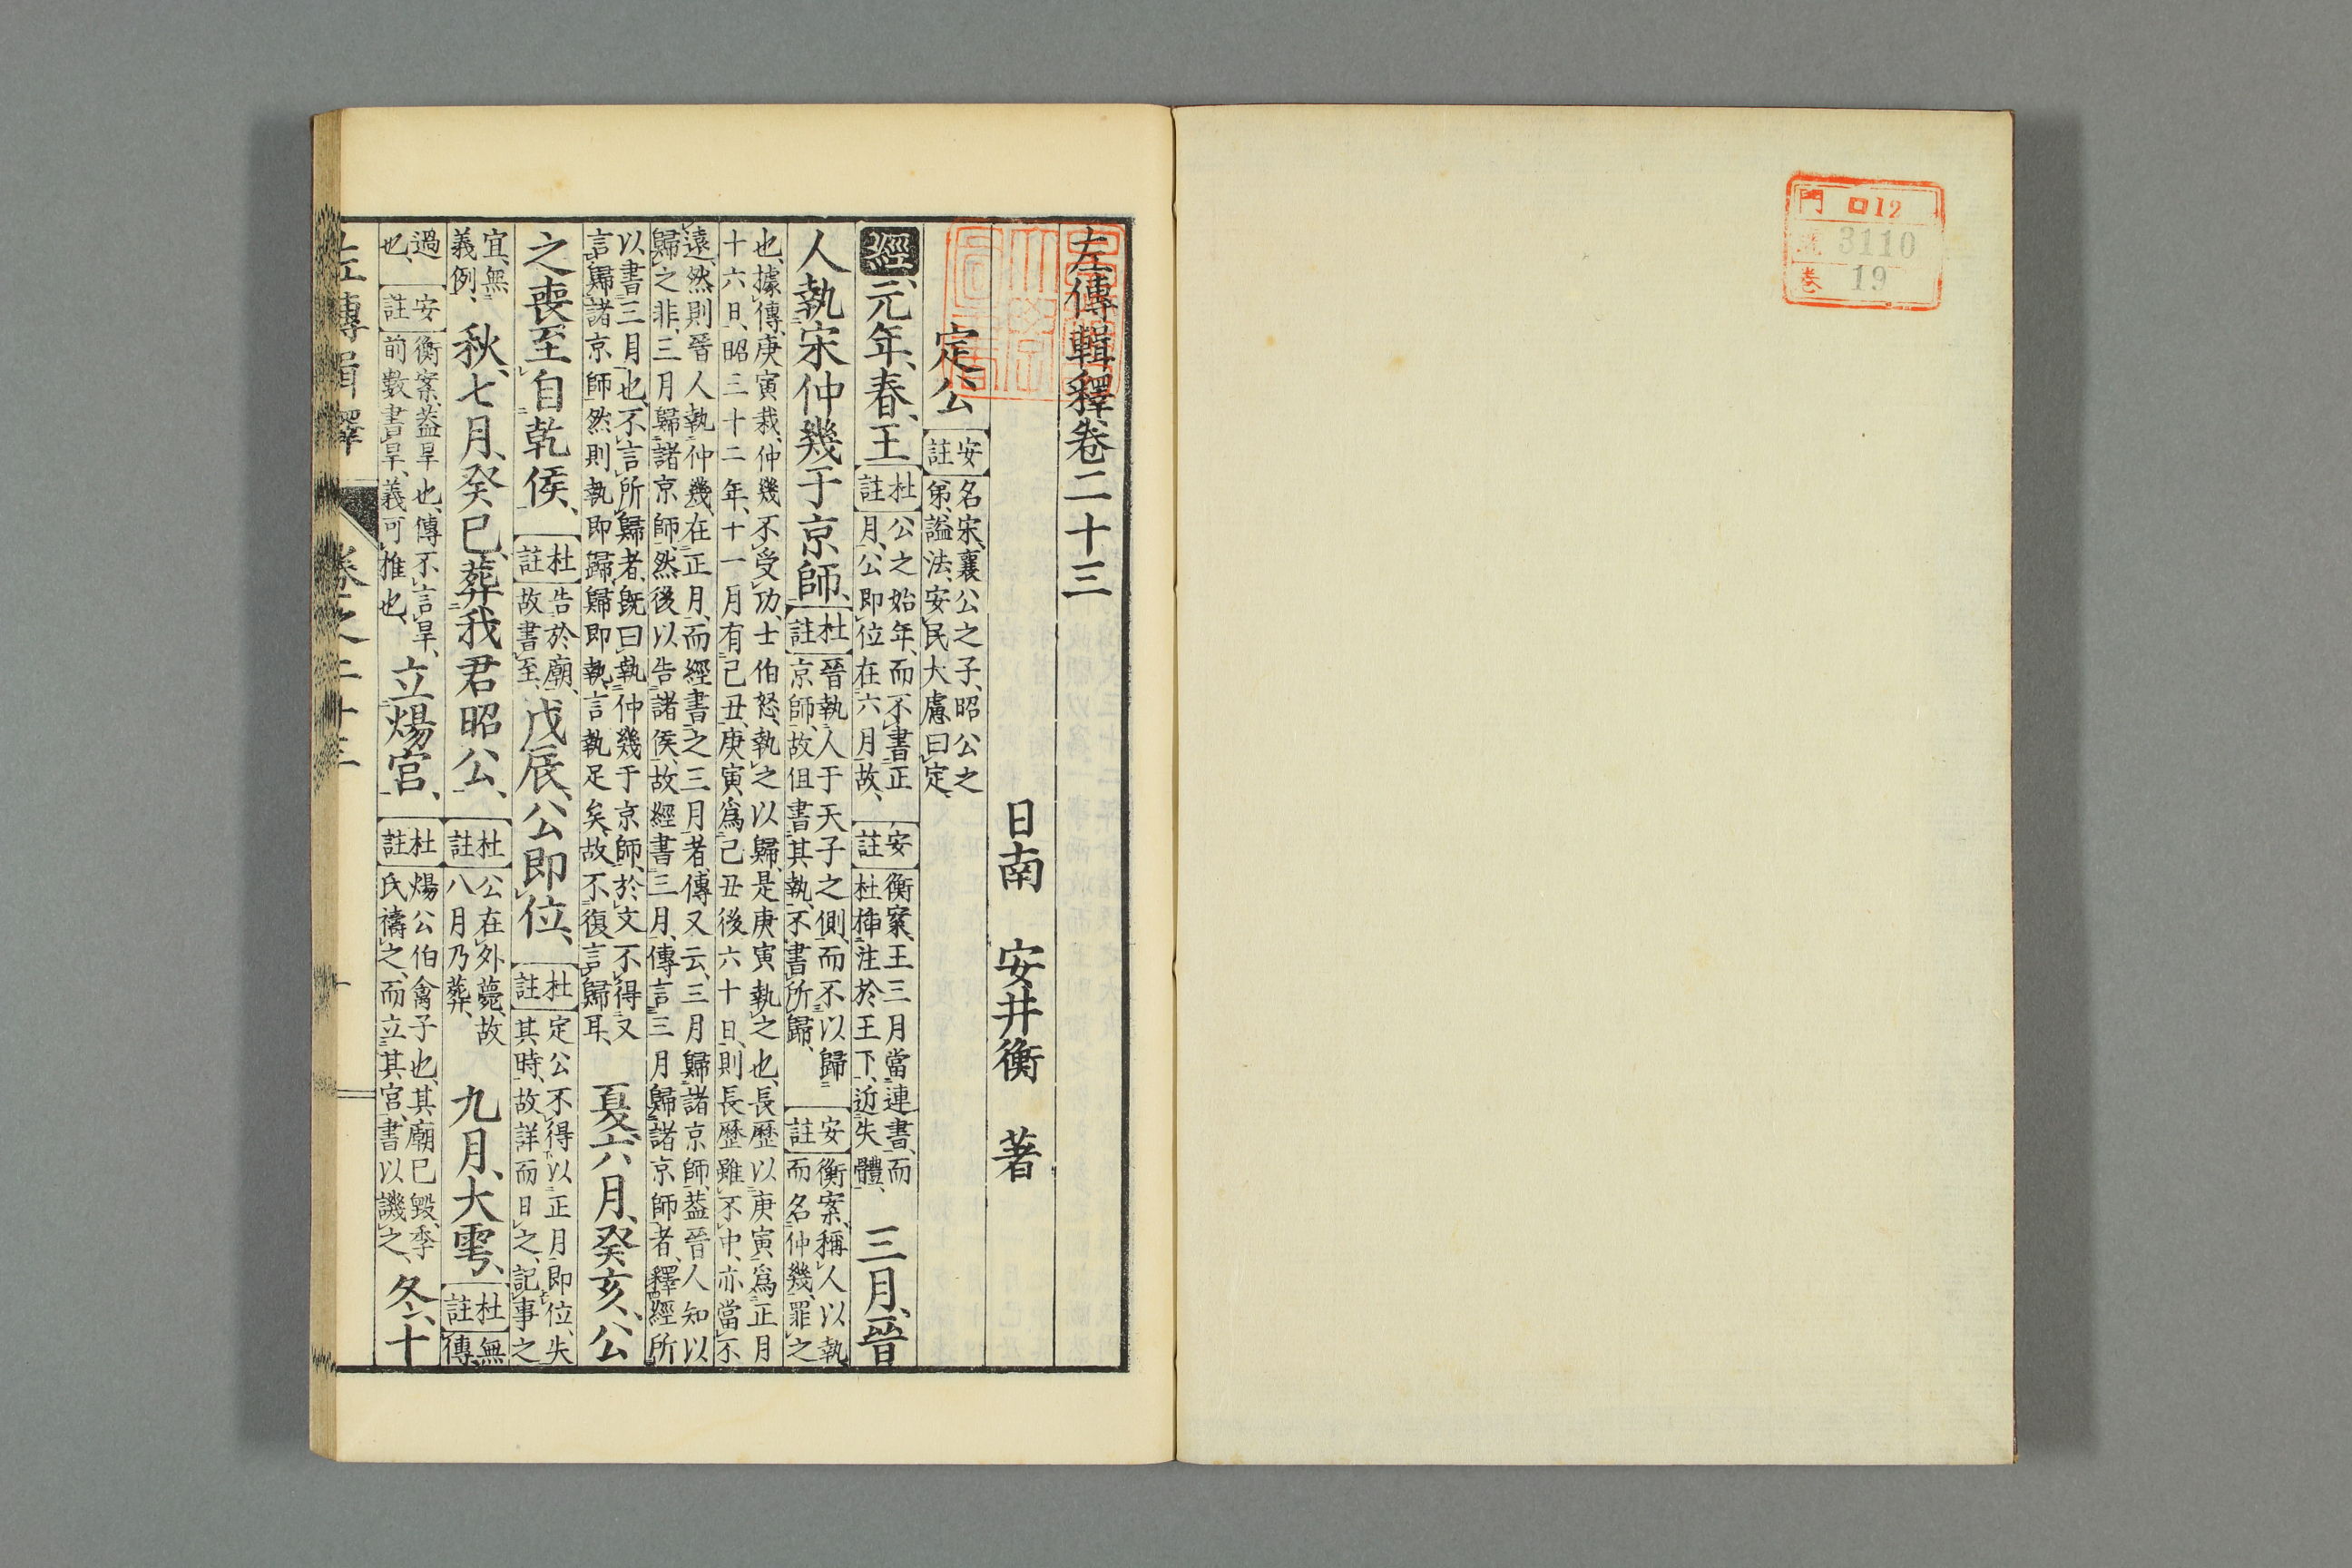 門 口12
號 3110
卷 19
左傳輯釋卷二十三
日南 安井衡 著
定公 安註 名宋、襄公之子、昭公之
弟、謚法、安民大慮曰定、
經 元年、春、王 杜註 公之始年、而不書正
月、公即位在六月故、 安註 衡案、王三月當連書、而
杜揷注於王下、近失體、 三月、晉
人執宋仲幾于京師、 杜註 晉執人于天子之側、而不以歸
京師、故但書其執、不書所歸、 安註 衡案、稱人以執
而名仲幾、罪之
也、據傳、庚寅栽、仲幾不受功、士伯怒、執之以歸、是庚寅執之也、長歷以庚寅爲正月
十六日、昭三十二年、十一月有己丑、庚寅、爲己丑後六十日、則長歷雖不中、亦當不
遠、然則晉人執仲幾、在正月、而經書之三月者、傳又云、三月歸諸京師、葢晉人知以
歸之非、三月歸諸京師、然後以告諸侯、故經書三月、傳言三月歸諸京師者、釋經所
以書三月也、不言所歸者、旣曰執仲幾于京師、於文不得又
言歸諸京師然則執即歸、歸即執、言執足矣、故不復言歸耳、 夏六月、癸亥、公
之喪至自乾侯、 杜註 告於廟、
故書至、 戊辰、公即位、 杜註 定公不得以正月即位、失
其時、故詳而日之、記事之
宜、無
義例、 秋、七月、癸巳、葬我君昭公、 杜註 公在外薨、故
八月乃葬、 九月、大雩、 杜註 無
傳、
過
也、 安註 衡案、葢旱也、傳不言旱、
前數書旱、義可推也、 立煬宮、 杜註 煬公伯禽子也、其廟已毀、季
氏禱之、而立其宮、書以譏之、 冬、十
左傳輯釋 卷之二十三 一